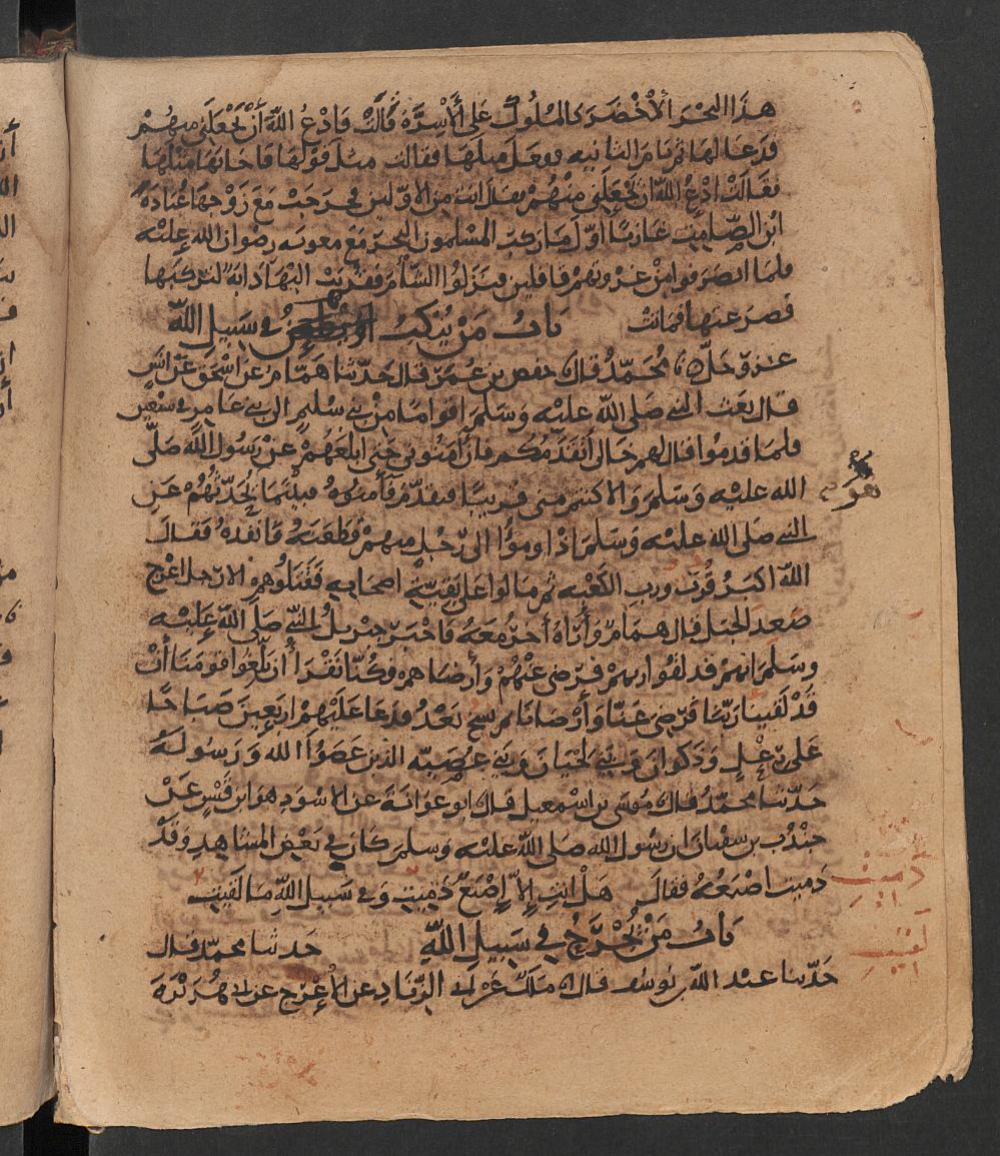 هذا البحر الأخضر كالملوك على الأسرة قالت فادع الله أن يجعلني منهم
فدعا لها ثم نام الثانيه ففعل مثلها فقالت مثل قولها فاجابها مثلها
فقالت ادع الله ان يجعلني منهم فقال انت من الاولين فخرجت مع زوجها عبادة
ابن الصامت غازيا اول ما ركب المسلمون البحر مع معويه رضوان الله عليه
فلما انصرفوا من غزوتهم قافلين فنزلوا الشأم فقربت اليها دابة لتركبها
فصرعتها فماتت باب من ينكب في سبيل الله
عز وجل محمد قال حفص بن عمر قال حدثنا همام عن اسحق عن انس
قال بعث النبي صلى الله عليه وسلم اقواما من بني سليم الى بني عامر في سبعين
فلما قدموا قال لهم خالي أتقدمكم فان أمنوني حتى ابلغهم عن رسول الله صلى
الله عليه وسلم والا كنتم مني قريبا فتقدم فأمنوه فبينما يحدثهم عن
النبي صلى الله عليه وسلم اذ اومؤا الى رجل منهم فطعنه فانفذه فقال
الله اكبر فزت ورب الكعبه ثم مالوا على بقية اصحابه فقتلوهم الا رجل اعرج
صعد الجبل قال همام وأراه اخر معه فاخبر جبريل النبي صلى الله عليه
وسلم انهم قد لقوا ربهم فرضي عنهم وأرضاهم وكنا نقرأ ان بلغوا قومنا أن
قد لقينا ربنا فرضي عنا وأرضانا ثم نسخ بعد فدعا عليهم اربعين صباحا
على رعل وذكوان وبني لحيان وبني عصيه الذين عصوا الله ورسوله
حدثنا محمد قال موسى بن اسمعيل قال ابو عوانة عن الاسود هو ابن قيس عن
جندب بن سفيان ان رسول الله صلى الله عليه وسلم كان في بعض المشاهد وقد
دميت اصبعه فقال هل انت الا إصبع دميت وفي سبيل الله ما لقيت
باب من يجرح في سبيل الله حدثنا محمد قال
حدثنا عبد الله بن يوسف قال مالك عن ابي الزناد عن الأعرج عن ابي هريرة
دميت
لقيت